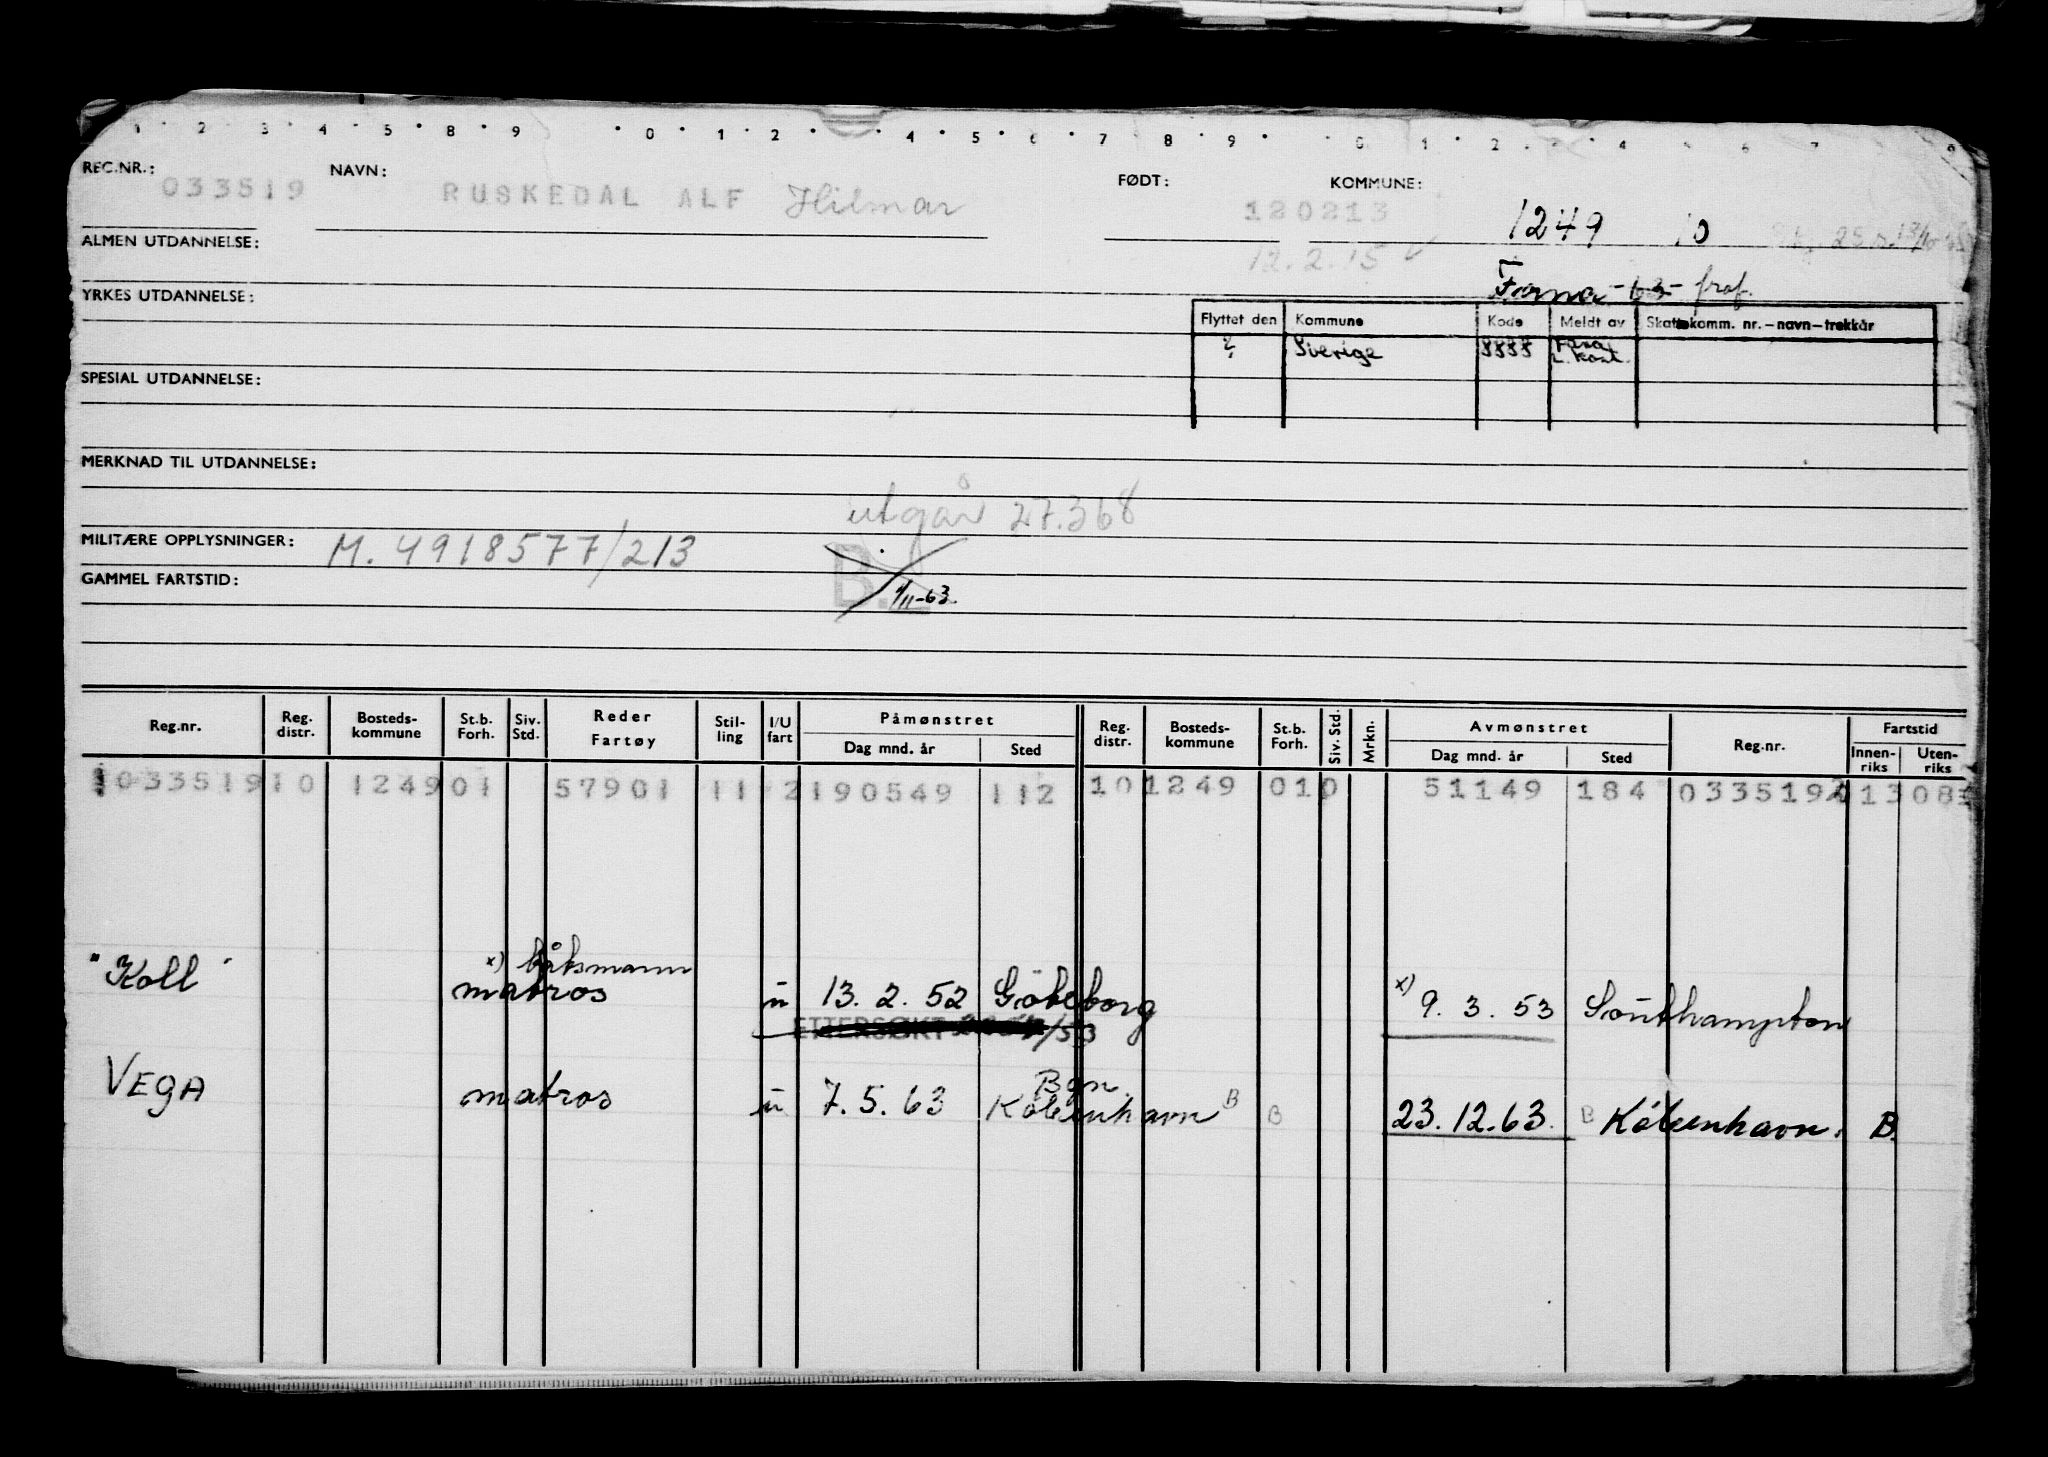 REG.NR.: 033519 NAVN: RUSKEDAL ALF Hilmar FØDT: 120213 KOMMUNE: 1249 10
12.2.15
ALMEN UTDANNELSE:
Fana -63- fraf.
YRKES UTDANNELSE:
Flyttet den Kommune Kode Meldt av Skattekomm. nr.-navn-trekkår
? Sverige 8888 Fana L. kont.
SPESIAL UTDANNELSE:
MERKNAD TIL UTDANNELSE:
utgår 27.368
MILITÆRE OPPLYSNINGER: M. 4918577/213
GAMMEL FARTSTID: B. 1/11-63
Reg.nr. Reg. distr. Bosteds- kommune St.b. Forh. Siv. Std. Reder Fartøy Stil- ling I/U fart Påmønstret Dag mnd. år Sted Reg. distr. Bosteds- kommune St.b. Forh. Siv. Std. Mrkn. Avmønstret Dag mnd. år Sted Reg.nr. Fartstid Innen- riks Uten- riks
033519 10 1249 01 57901 11 2 190549 112 10 1249 01 0 51149 184 033519 13 08
x) båtsmann
"Koll" matros u 13.2.52 Göteborg x) 9.3.53 Southampton
ETTERSØKT /53
Bgn.
VEGA matros u 7.5.63 København B B 23.12.63. B København. B.